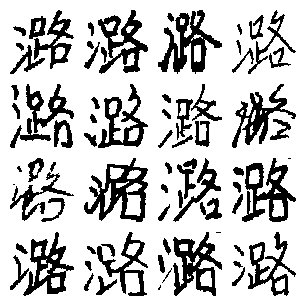 潞潞潞潞
潞潞潞潞
潞潞潞潞
潞潞潞潞